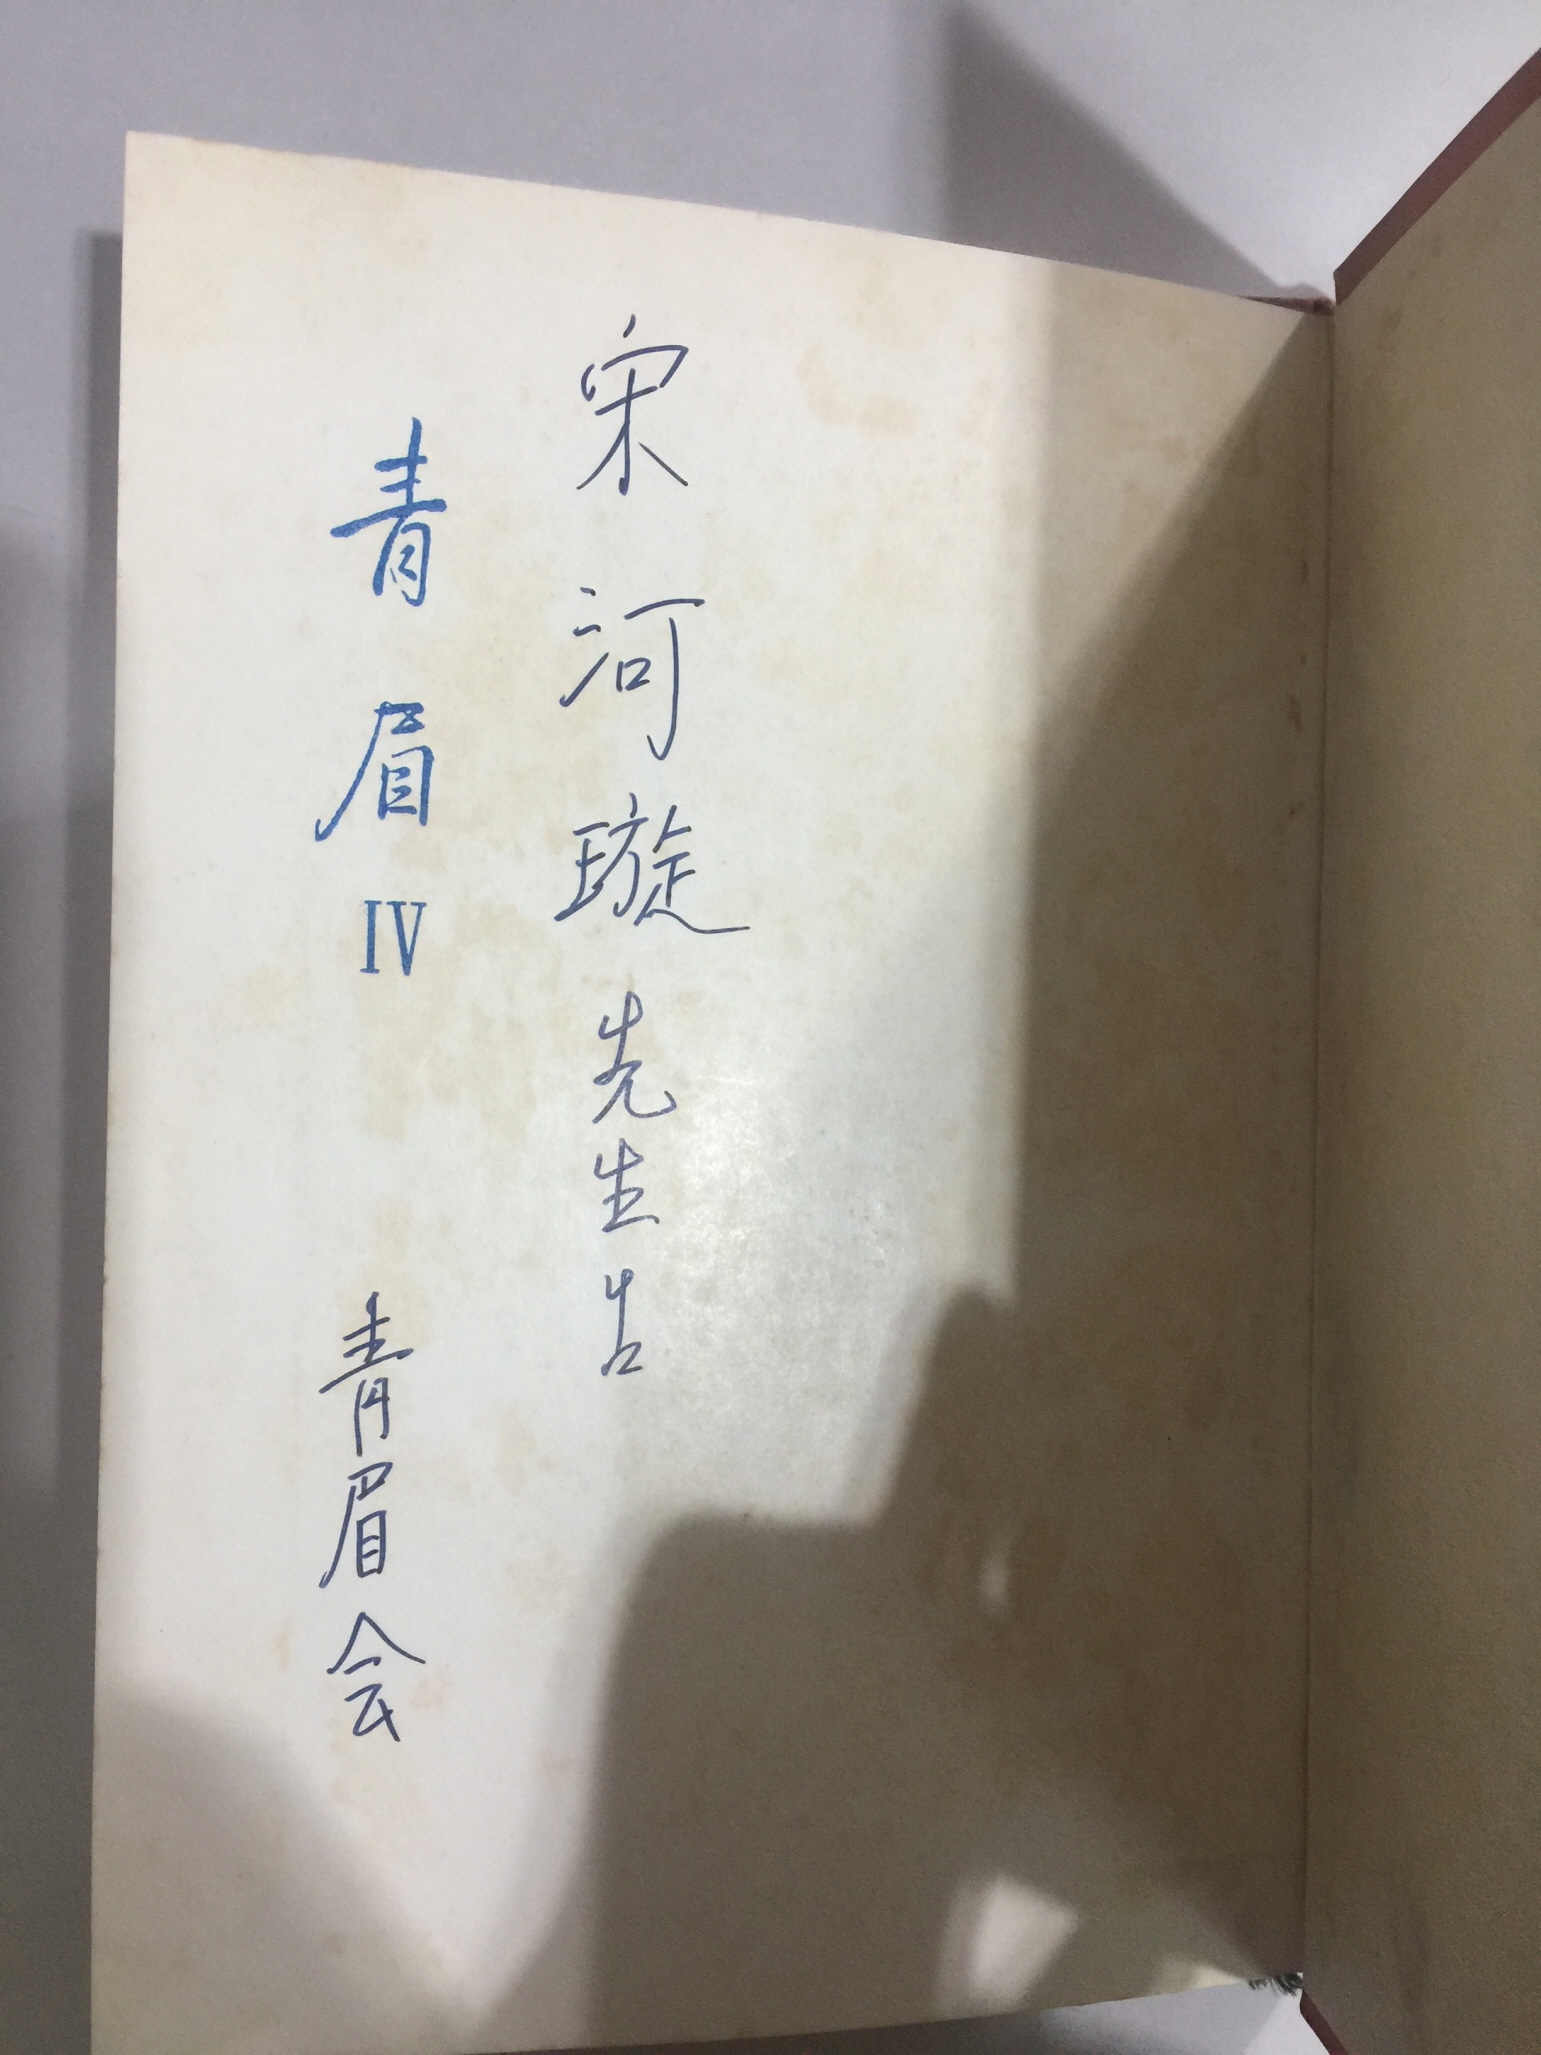 宋河璇先生 告
青眉 IV 青眉会